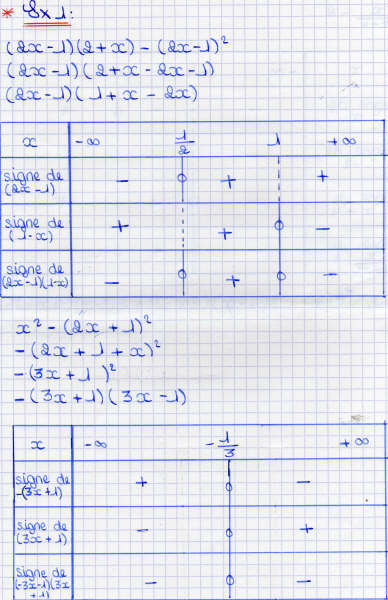 * Ex 1:
(2x-1)(2+x) - (2x-1)²
(2x-1)(2+x-2x-1)
(2x-1)(1+x-2x)
x -∞ 1/2 1 +∞
signe de (2x-1) - 0 + +
signe de (1-x) + + 0 -
signe de (2x-1)(1-x) - 0 + 0 -
x² - (2x+1)²
-(2x+1+x)²
-(3x+1)²
-(3x+1)(3x-1)
x -∞ -1/3 +∞
signe de -(3x+1) + 0 -
signe de (3x+1) - 0 +
signe de (-3x-1)(3x+1) - 0 -